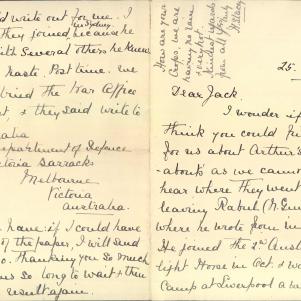 25.
Dear Jack.
I wonder if
think you could
for us about Arthur's
abouts as we cannot
hear where they went
leaving Rabul (N. Gui
where he wrote from in
He joined the 2nd Aust
light Horse in Oct. & wa
Camp at Liverpool a w
How are your
Crops. we are
having no rain
Kindest regards
from all
write out for me. I
in Sydney
they joined because he
with several others he knew
haste. Post time. We
the War Office
& they said write to
epartment of Defence
ctoria Barracks
Melbourne
Victoria
Australia.
I have if I could have
of the paper, I will send
Thanking you so much
us so long to wait & then
result again.